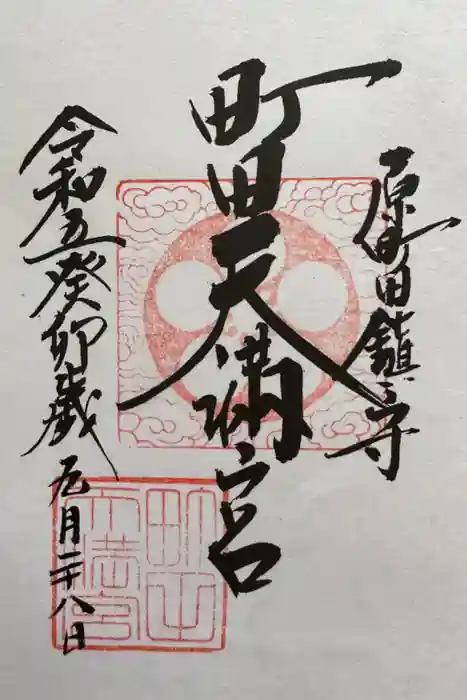 原町田鎮守
町田天満宮
令和五癸卯歳元月二十八日
町田
天満宮